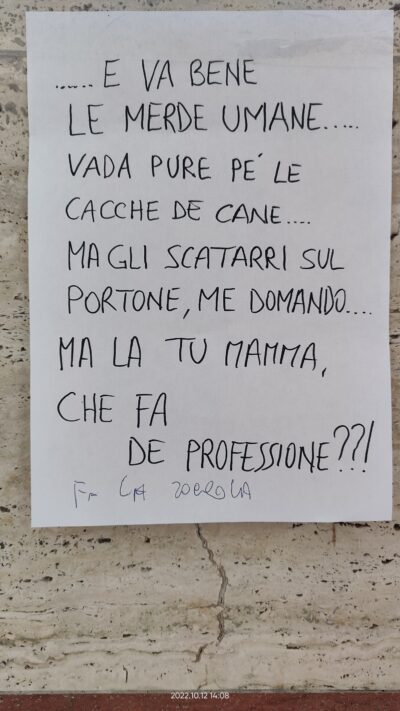 ...... E VA BENE
LE MERDE UMANE.....
VADA PURE PE' LE
CACCHE DE CANE....
MA GLI SCATARRI SUL
PORTONE, ME DOMANDO....
MA LA TU MAMMA,
CHE FA
DE PROFESSIONE??!
FA LA ZOCCOLA
2022.10.12 14:08